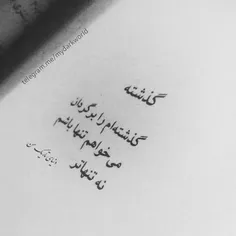 telegram.me/mydarkworld
گذشته
گذشته‌ام را برگردان
می‌خواهم تنها باشم
نه تنهاتر
دنیای تاریک من